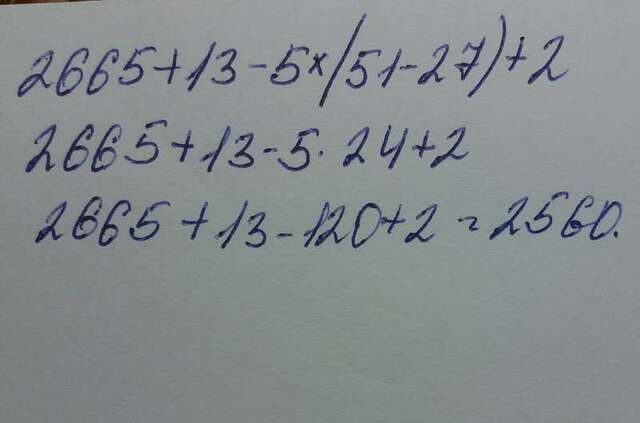 2665+13-5×(51-27)+2
2665+13-5·24+2
2665+13-120+2=2560.